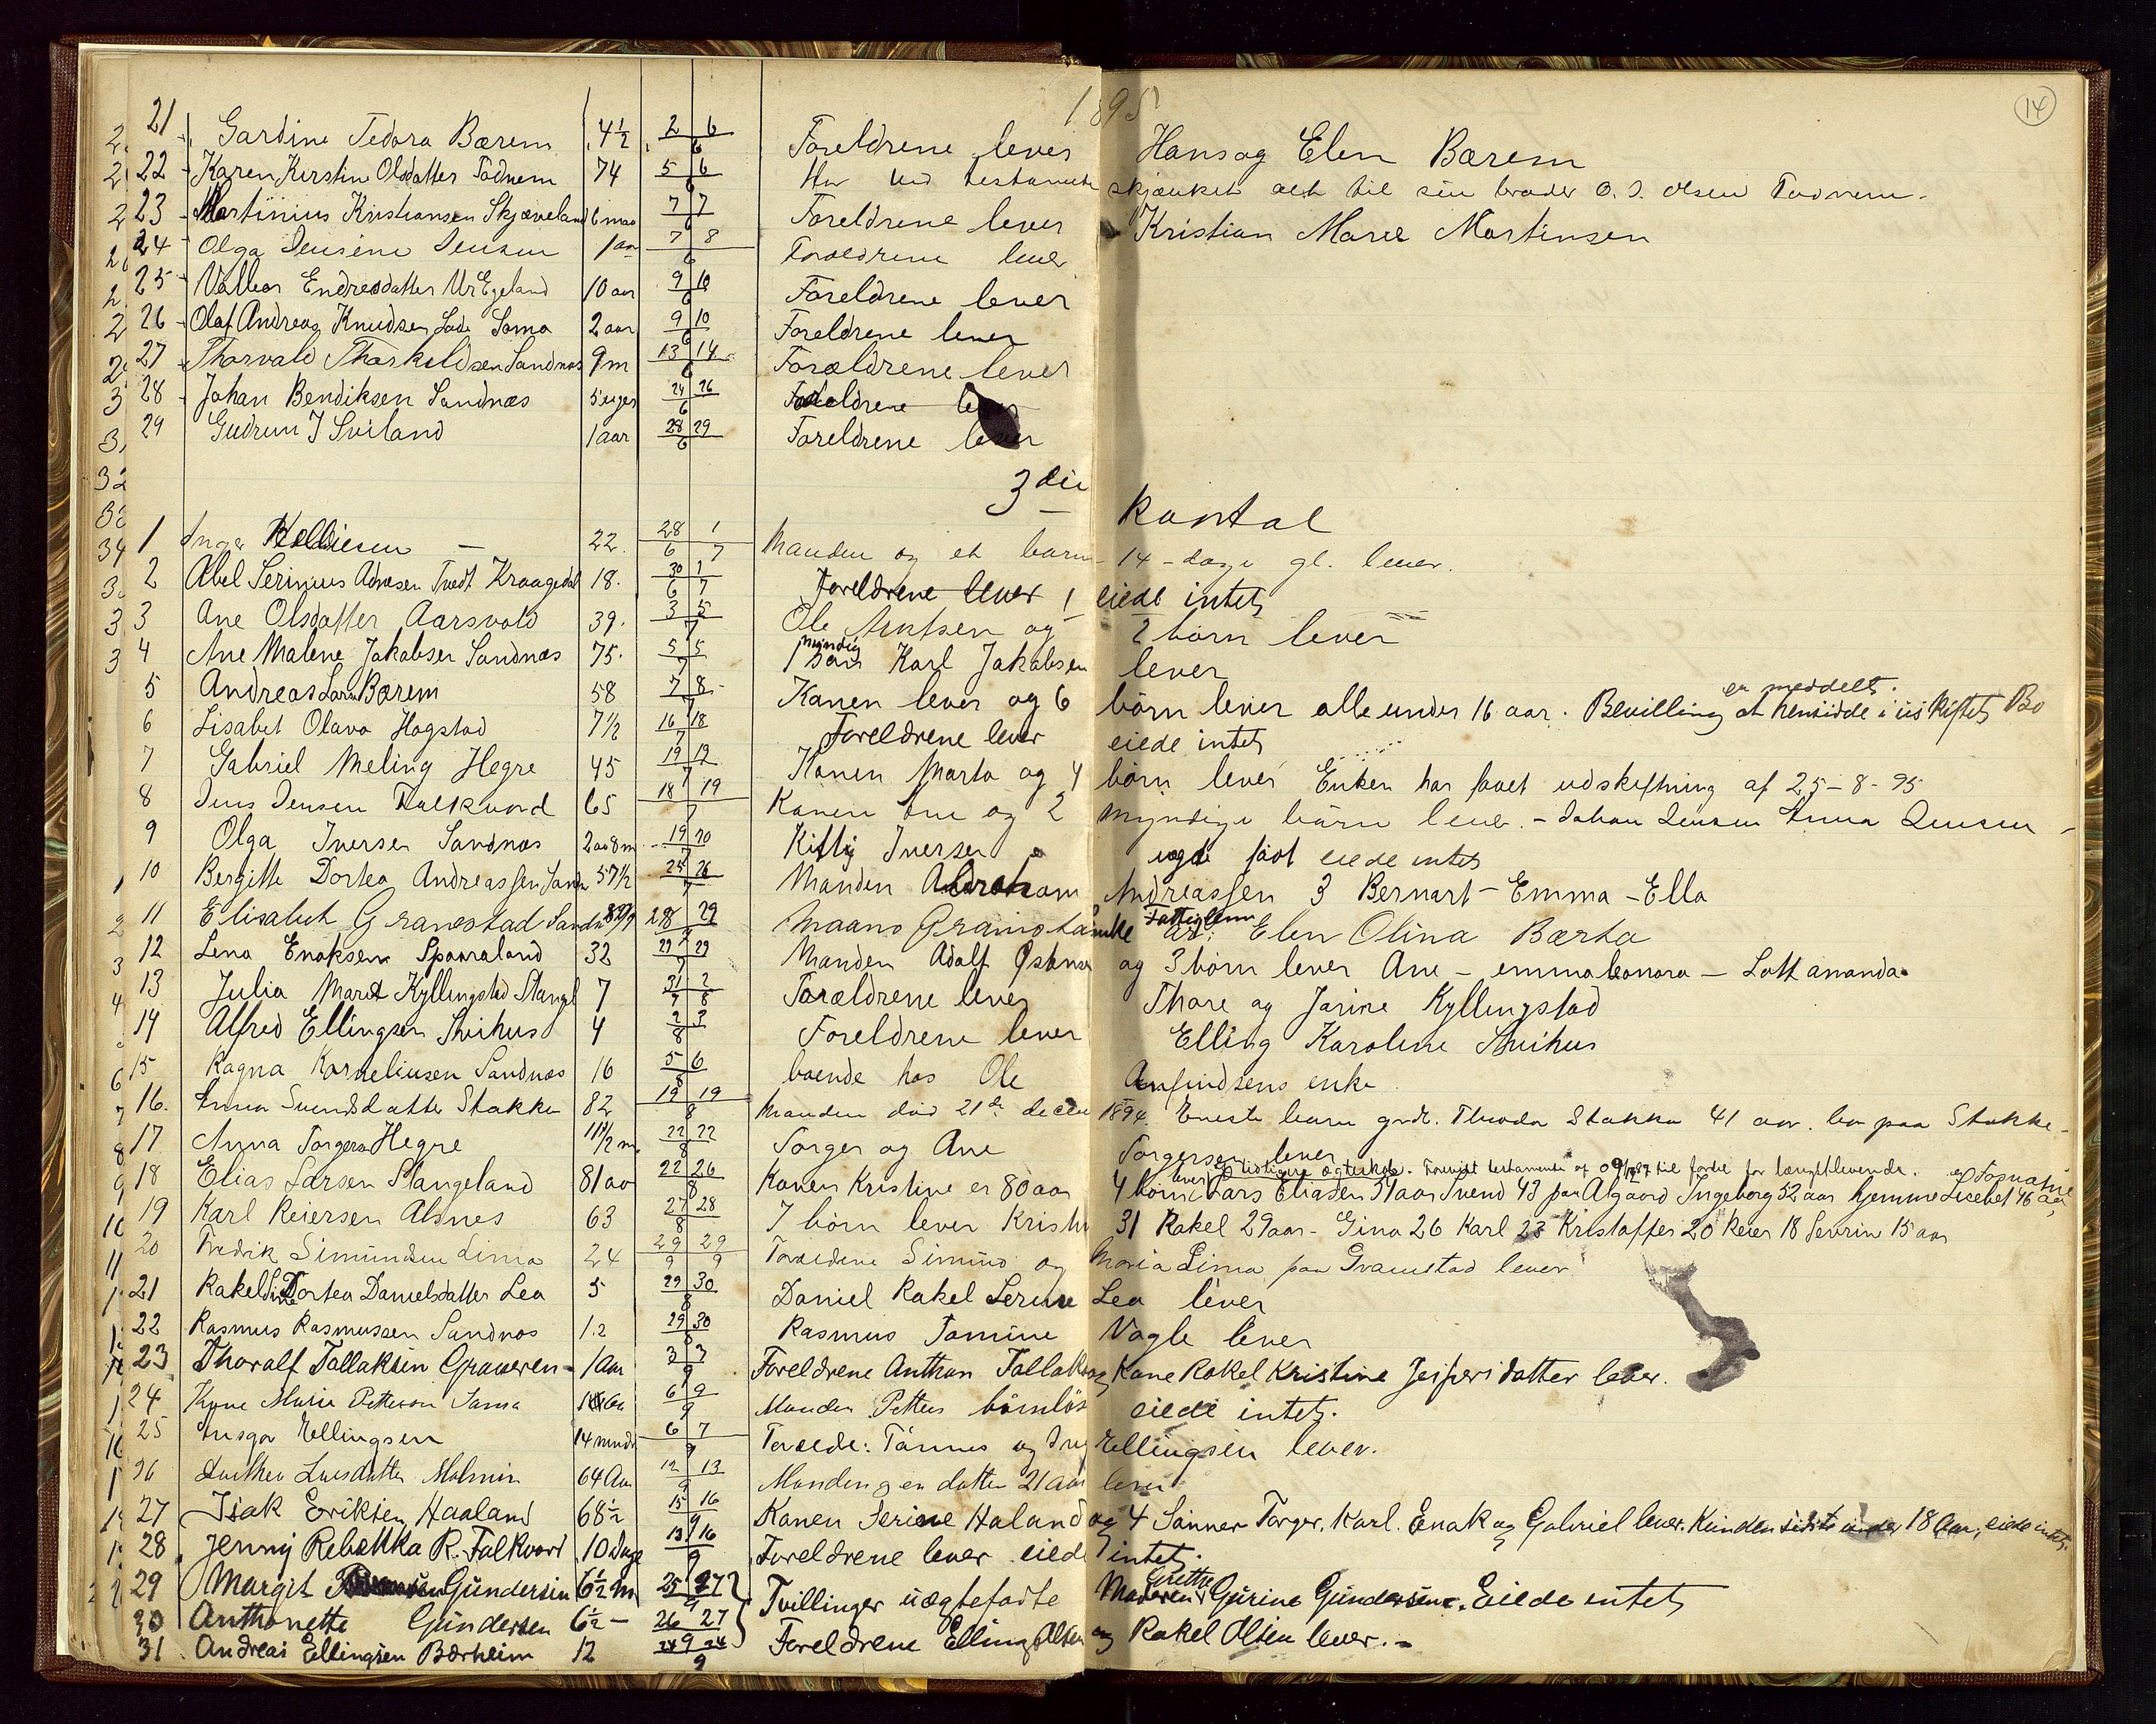 1895
14
21 Gardine Tedora Bærem 4½ 2/6 6 Foreldrene lever Hans og Elen Bærem
22 Karen Kirstine Olsdatter Todnem 74 5/6 6/6 Har ved testamente skjænket alt til sin broder O. J. Olsen Todnem.
23 Martinius Kristiansen Skjæveland 6 maa 7 7 6 Foreldrene lever Kristian Marie Martinsen
24 Olga Jensine Jensen 1 aar 7 8 6 Forældrene lever
25 Valbor Endresdatter Ur Egeland 10 aar 9 10 6 Foreldrene lever
26 Olaf Andreas Knudsen Lode Soma 2 aar 9 10 6 Foreldrene lever
27 Thorvald Thorkildsen Sandnæs 9 m 13 14 6 Forældrene lever
28 Johan Bendiksen Sandnæs 5 uger 24 26 6 Foreldrene lever
29 Gudrun J Sviland 1 aar 28 29 6 Foreldrene lever
3die Kvartal
1 Inger 22. 28 1 6 7 Manden og et barn 14-dage gl. lever.
2 Abel Serinius Tvedt Kraagedal 18. 30 1 6 7 Foreldrene lever eiede intet
3 Ane Olsdatter Aarsvold 39. 3 5 7 Ole og 2 børn lever
4 Ane Malene Jakobsen Sandnæs 75. 5 5 7 1 myndig søn Karl Jakobsen lever
5 Andreas Larsen Bærem 58 7 8 7 Kanen lever og 6 børn lever alle under 16 aar. Bevilling at hensidde i uskiftet Bo er meddelt.
6 Lisabet Olava Hogstad 7½ 16 18 7 Foreldrene lever eiede intet
7 Gabriel Meling Hegre 45 19 12 7 Kanen Marta og 4 børn lever Enken har faaet udskiftning af 25-8-95
8 Jens Jensen Falkvord 65 18 19 7 Kanen Ane og 2 myndige børn lever. - Johan Jensen Anna Jensen -
9 Olga Iversen Sandnæs 2 aa 8 m 19 20 7 Kitty Iversen uegte født eiede intet
10 Bergitte Dortea Andreassen Sandn 57½ 25 26 7 Manden Abraham Andreassen 3 Bernart - Emma - Ella
11 Elisabet Gramstad Sandn 28 29 7 Maans Gramstad Enke Fattiglem Elen Olina Bærta
12 Lena Enoksen Spaaraland 32 29 29 7 Manden Adolf Østense og 3 børn lever Ane - emma leonora - Lott ananda
13 Julia Maret Kyllingstad Stangl 7 31 2 7 8 Forældrene lever Thore og Jarine Kyllingstad
14 Alfred Ellingsen Skihus 4 2 3 8 Foreldrene lever Elling Karoline Skihus
15 Ragna Korneliusen Sandnæs 16 5 6 8 boende hos Ole Anfindsens enke
16. Anna Svendsdatter Stokke 82 19 19 8 Manden død 21de decem 1894. Eneste barn grdr. Theodor Stokke 41 aar. bor paa Stokke.
17 Anna Torgersen Hegre 11½ m 22 22 8 Torger og Ane Torgersen lever
18 Elias Larsen Stangeland 81 aa 22 26 8 Kanen Kristine er 80 aar 4 børn lever af tidligere ægteskab. Forevist testamente af til fordel for længstlevende. Lars Eliasen 51 aar Svend 43 paa Algaard Ingeborg 52 aar hjemme Lisebet 46 aar
19 Karl Reiersen Alsnes 63 27 28 8 7 børn lever Kristin 31 Rakel 29 aar - Gina 26 Karl 23 Kristoffer 20 Reier 18 Sevrin 15 aar
20 Fredrik Simundsen Lima 24 29 29 9 9 Foreldrene Simund og Maria Lima paa Gramstad lever
21 Rakel Sine Dortea Danielsdatter Lea 5 29 30 8 Daniel Rakel Serine Lea lever
22 Rasmus Rasmussen Sandnæs 12 29 30 8 Rasmus Tomine Vagle lever
23 Thoralf Tallaksen Graveren - 1 Aar 3 3 9 Foreldrene Anthon Tallaksen og Kone Rakel Kristine Jespersdatter lever.
24 Kone Marie Petterson Soma 6 9 9 Manden Petter børnløs eiede intet.
25 Ansgar Ellingsen 14 mndr 6 7 9 Forælde: Tønnes og Ellingsen lever.
26 Dorthea Larsdatter Molmin 64 Aar 12 13 9 Manden og en datter 21 aar lever
27 Isak Eriksen Haaland 68½ 15 16 9 Kanen Serine Haland og 4 Sønner Torger. Karl. Enak og Gabriel lever. Kun den sidste under 18 Aar, eiede intet.
28 Jenny Rebekka R. Falkvord 10 Dage 13 16 9 Foreldrene lever eiede intet.
29 Margit Gundersen 6½ M 25 27 9 Tvillinger uægtefødte Moderen Grethe Gurine Gundersen. Eiede intet
30 Anthonette Gundersen 6½ - 26 27 9
31 Andreas Ellingsen Bærheim 12 24 24 9 Foreldrene Elling Olsen og Rakel Olsen lever. -